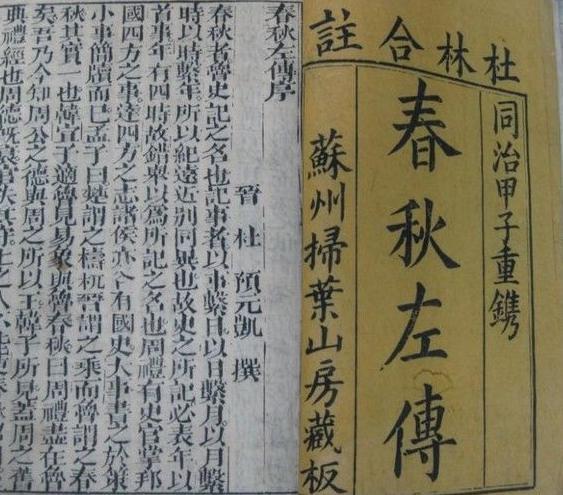 杜林合註
同治甲子重鐫
春秋左傳
蘇州掃葉山房藏板
春秋左傳序
晉 杜 預元凱 撰
春秋者魯史記之名也記事者以事繫日以日繫月以月繫
時以時繫年所以紀遠近別同異也故史之所記必表年以
首事年有四時故錯舉以為所記之名也周禮有史官掌邦
國四方之事達四方之志諸侯亦各有國史大事書之於策
小事簡牘而已孟子曰楚謂之檮杌晉謂之乘而魯謂之春
秋其實一也韓宣子適魯見易象與魯春秋曰周禮盡在魯
矣吾乃今知周公之德與周之所以王韓子所見蓋周之舊
典禮經也周德既衰官失其守上之人不能使春秋